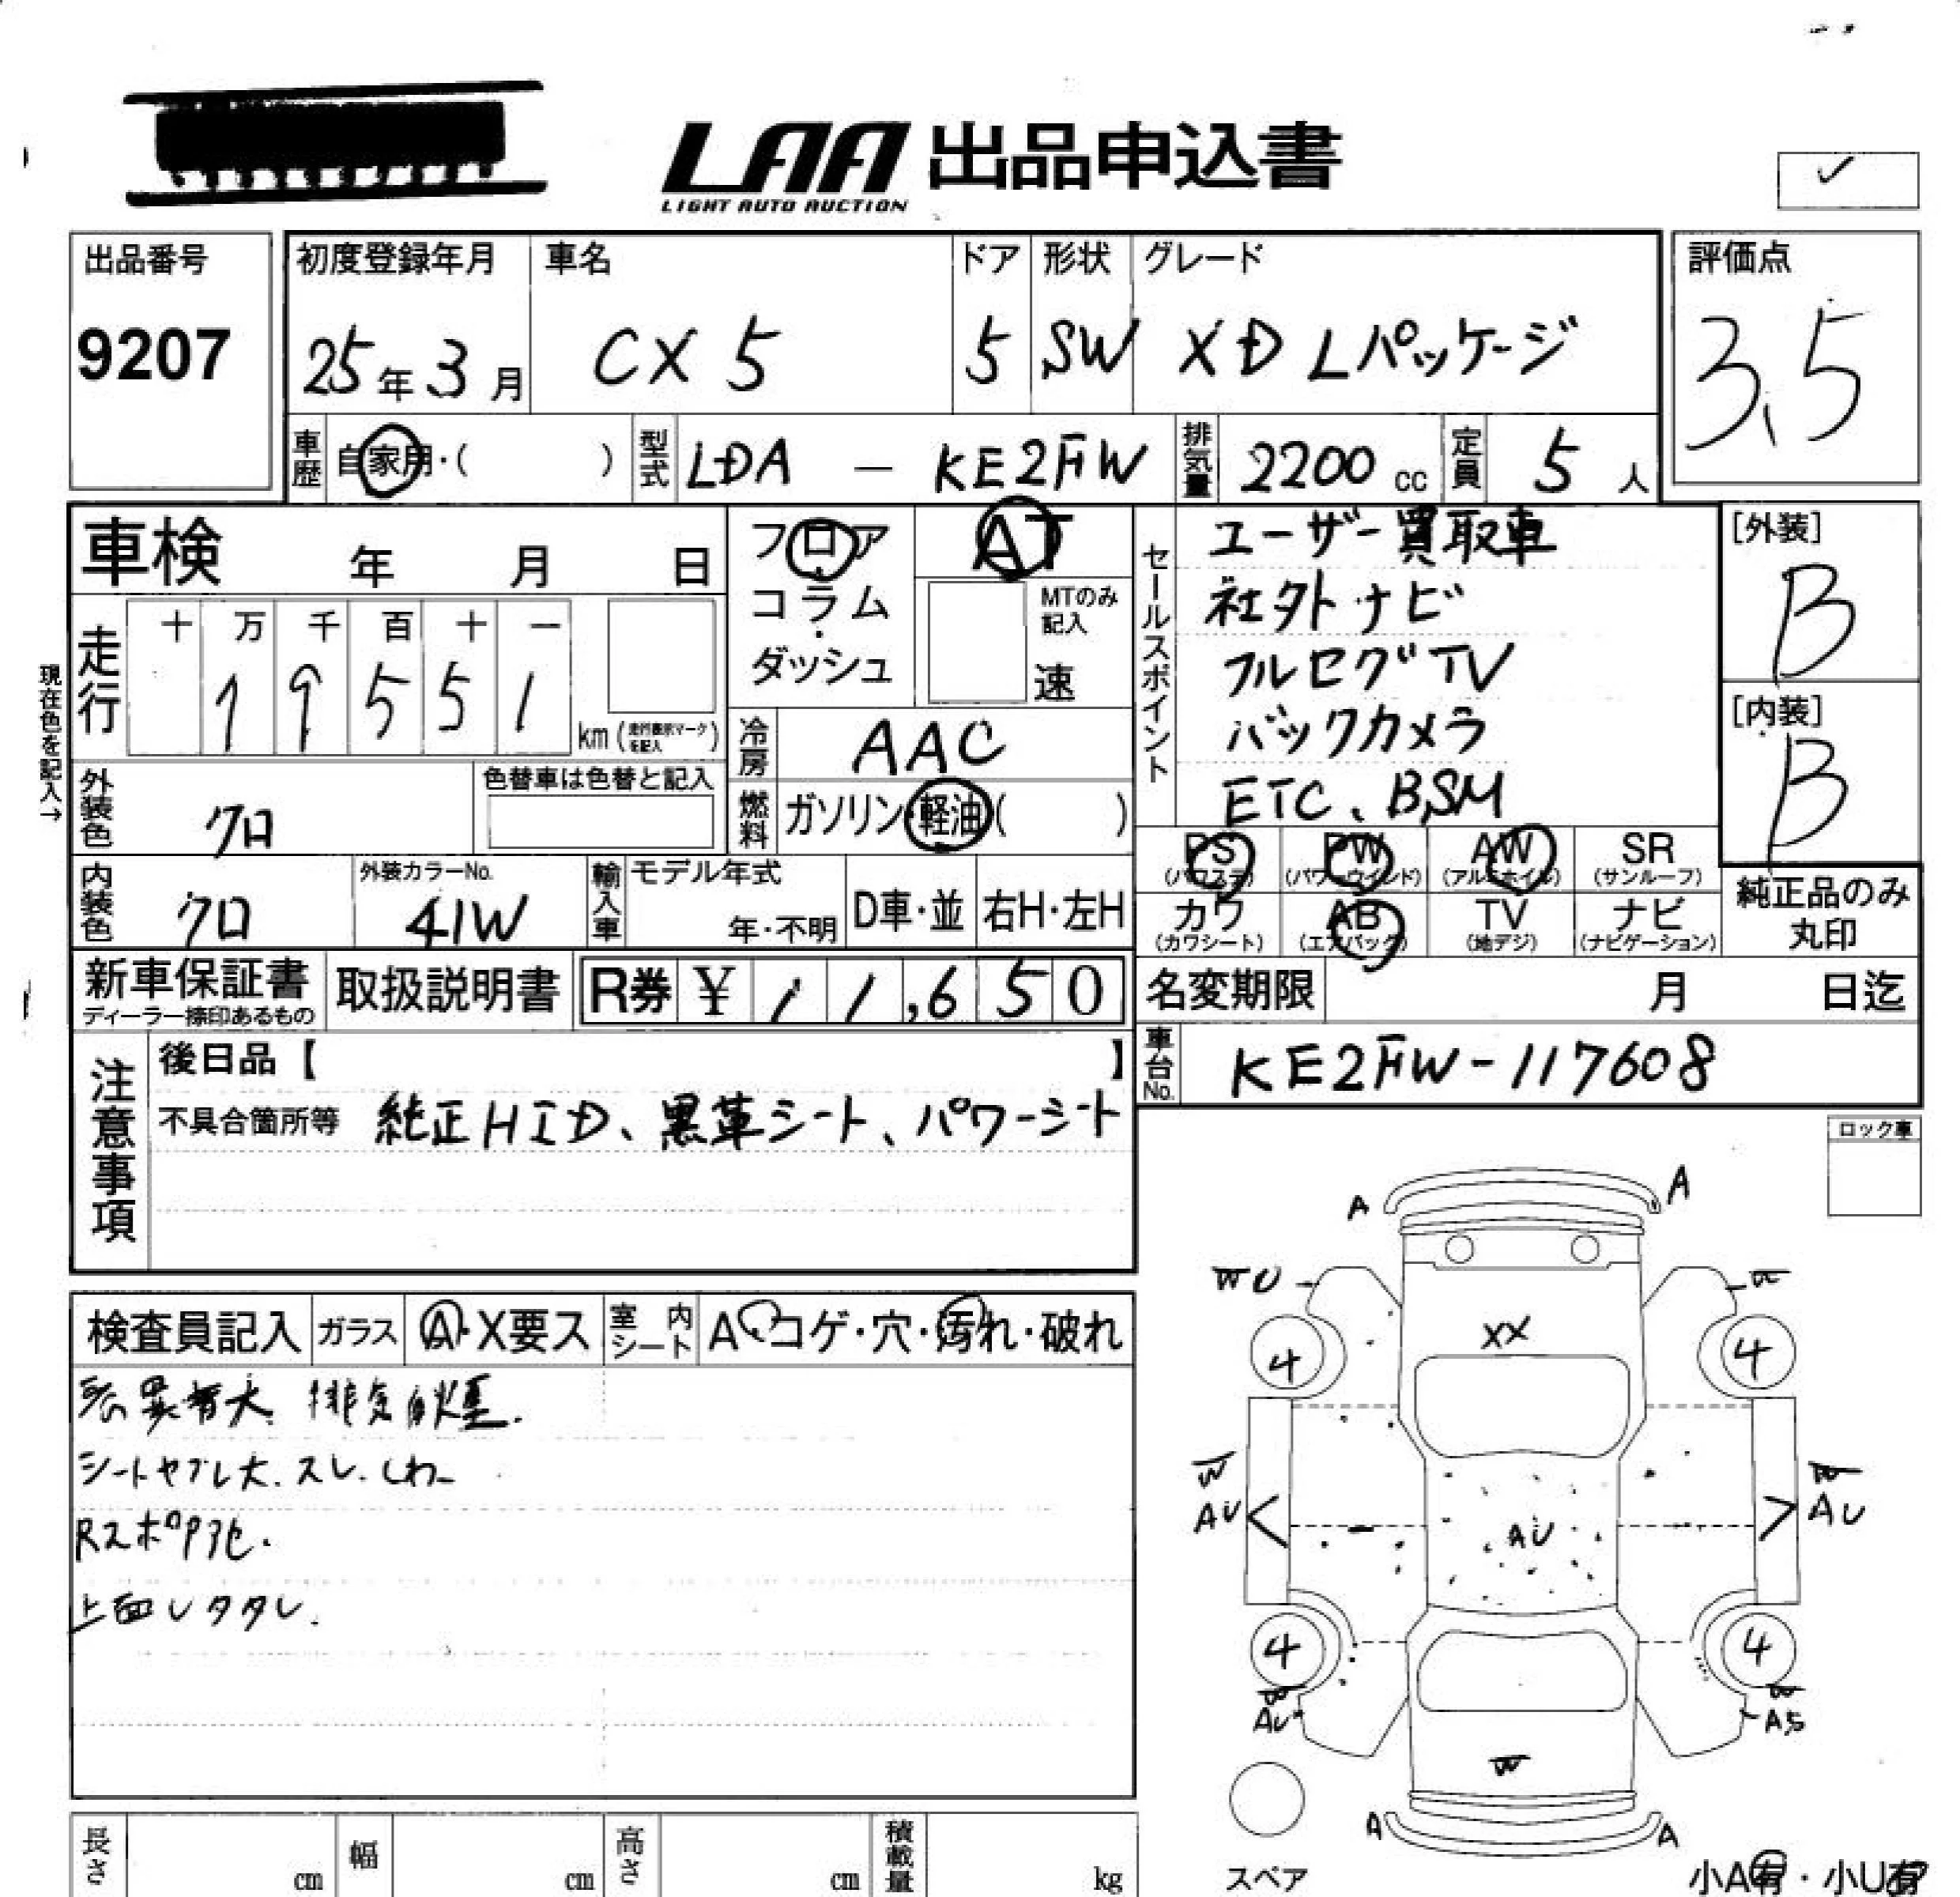 LAA 出品申込書
LIGHT AUTO AUCTION
✓
出品番号
9207
初度登録年月
25年3月
車名
CX5
ドア
5
形状
SW
グレード
XD Lパッケージ
評価点
3.5
車歴
自家用・(　)
型式
LDA － KE2FW
排気量
2200cc
定員
5人
車検　年　月　日
フロア
コラム・
ダッシュ
AT
MTのみ記入
速
セールスポイント
ユーザー買取車
社外ナビ
フルセグTV
バックカメラ
ETC、BSM
[外装]
B
[内装]
B
現在色を記入→
走行
十 万 千 百 十 一
1 9 5 5 1
km(走行表示マークを記入)
冷房
AAC
燃料
ガソリン・軽油(　)
外装色
クロ
色替車は色替と記入
内装色
クロ
外装カラーNo.
41W
輸入車
モデル年式
年・不明
D車・並
右H・左H
PS
(パワステ)
PW
(パワーウインド)
AW
(アルミホイル)
SR
(サンルーフ)
カワ
(カワシート)
AB
(エアバッグ)
TV
(地デジ)
ナビ
(ナビゲーション)
純正品のみ
丸印
新車保証書
ディーラー捺印あるもの
取扱説明書
R券 ¥11,650
名変期限　月　日迄
車台No.
KE2FW-117608
注意事項
後日品【　】
不具合箇所等 純正HID、黒革シート、パワーシート
ロック車
検査員記入
ガラス
A・X要ス
室内シート
A・コゲ・穴・汚れ・破れ
排気白煙.
シートヤブレ大.スレ.しわ
上面
A A
W U
W
XX
4 4
W W
AU AU
AU
4 4
W W
AU AS
W
A A
スペア
小A有・小U有
長さ cm
幅 cm
高さ cm
積載量 kg